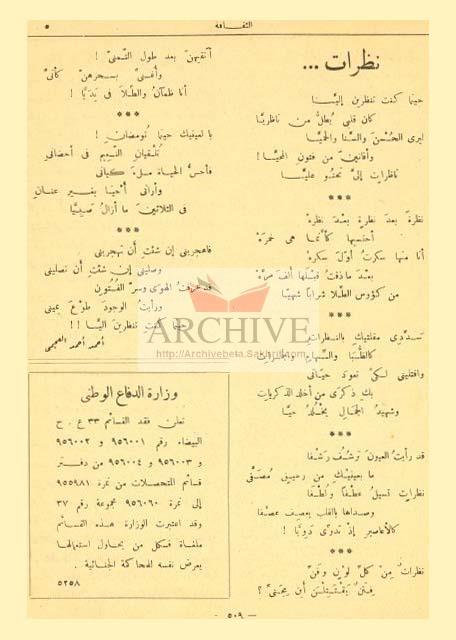 الثقافة
٥
نظرات ...
حينما كنت تنظرين إلينا
كان قلبي يُطلُّ من ناظريَّا
ليرى الحُسْنَ والسنا والحميَّا
وأفانينَ من فتون المحيَّا !
ناظرات إلىَّ تحنو عليَّا
***
نظرة بعد نظرةٍ بعْد نظره
أحتسيها كأنما هى خمرَه
أنا منها سكرتُ أوّل سكره
بعد ماذقتُ قبْلها ألف مرَّه
من كؤوس الطِّلا شراباً شهيّا
***
سدِّدى مقلتيكِ بالنظرات
كالظُّبا والسِّهامِ
واقتليني لكىْ تعود حيَاتى
بكِ ذكرَى من أخلد الذكريات
وشهيدُ الجمال يخْلُد حيّا
***
قد رأيتُ العيون ترشُف رَشْفا
ما بعينيكِ من رحيقٍ مُصَفَّى
نظراتٍ تسيلُ عطْفاً ولُطْفا
وصداها بالقلب يعصِف عصْفا
كالأعاصير إذ تدوّى دَوِيّا !
***
نظراتٌ مِن كلِّ لوْن وفَنّ
فِتَنٌ يَقْتَتِلْنَ أين مِجَنىِّ ؟
أتّقيهنّ بعد طول التمنىّ !
وأُغَنىِّ بسحرهنّ كأنىِّ
أنا ظمآنُ والطِّلا فى يَدَيّا !
***
يا لعينيك حينما تُومضان !
تُلْقيان النَّعِيم فى أحضانى
فأحسُّ الحياة ملءَ كيانى
وأرانى أحْيَا بغير عنان
فى الثلاثين ما أزالُ صَبِيَّا
***
فاهجرينى إن شئتِ أن تهجرينى
وصلينى إن شئتِ أن تصلينى
قد عرفتُ الهوَى وسرّ الفُتون
ورأيتُ الوجودَ طوْعَ يمينى
حينما كنتِ تنظرين إليَّا !!
أحمد أحمد العجمى
وزارة الدفاع الوطنى
تعلن فقد القسائم ٣٣ ع . ح
البيضاء رقم ٩٥٦٠٠١ و ٩٥٦٠٠٢
و ٩٥٦٠٠٣ و ٩٥٦٠٠٤ من دفتر
قسائم التحصلات من نمرة ٩٥٥٩٨١
إلى نمرة ٩٥٦٠٦٠ مجموعة رقم ٣٧
وقد اعتبرت الوزارة هذه القسائم
ملغاة فكل من يحاول استعمالها
يعرض نفسه للمحاكمة الجنائية .
٥٢٥٨
ARCHIVE
http://Archivebeta.Sakhrit.com
— ٥٠٩ —